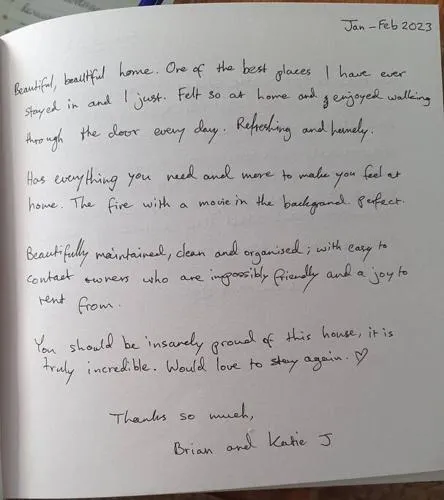 Jan - Feb 2023
Beautiful, beautiful home. One of the best places I have ever
stayed in and I just. Felt so at home and enjoyed walking
through the door every day. Refreshing and homely.
Has everything you need and more to make you feel at
home. The fire with a movie in the background. Perfect.
Beautifully maintained, clean and organised; with easy to
contact owners who are impossibly friendly and a joy to
rent from.
You should be insanely proud of this house, it is
truly incredible. Would love to stay again. ♡
Thanks so much,
Brian and Katie J